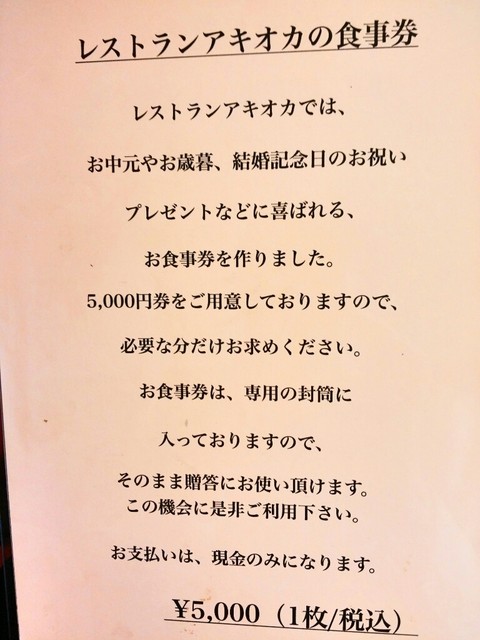 レストランアキオカの食事券
レストランアキオカでは、
お中元やお歳暮、結婚記念日のお祝い
プレゼントなどに喜ばれる、
お食事券を作りました。
5,000円券をご用意しておりますので、
必要な分だけお求めください。
お食事券は、専用の封筒に
入っておりますので、
そのまま贈答にお使い頂けます。
この機会に是非ご利用下さい。
お支払いは、現金のみになります。
¥5,000（1枚/税込）